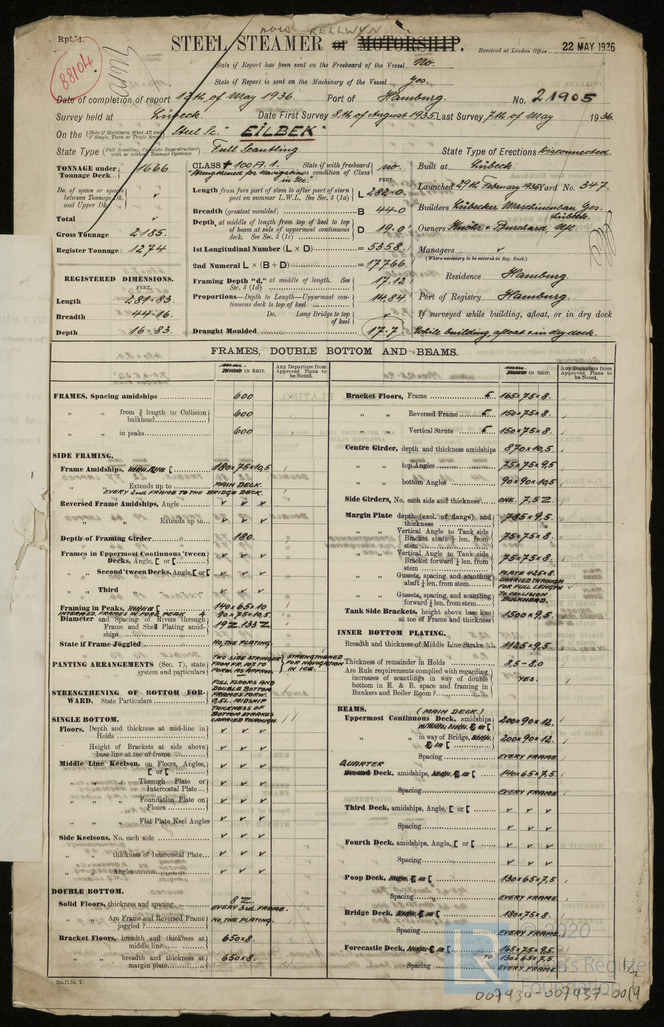 Rpt. 1.
NOW KELLWYN
88104
STEEL STEAMER or MOTORSHIP.
Received at London Office 22 MAY 1936
State if Report has been sent on the Freeboard of the Vessel No
State if Report is sent on the Machinery of the Vessel Yes.
Date of completion of report 12th of May 1936 Port of Hamburg. No. 21905
Survey held at Lübeck. Date First Survey 8th of August 1935 Last Survey 7th of May 1936
On the Steel Sc. "EILBEK"
State Type Full Scantling State Type of Erections Disconnected
TONNAGE under Tonnage Deck 1666
Do. of space or spaces between Tonnage Dk. and Upper Dk.
Total
Gross Tonnage 2185.
Register Tonnage 1274
REGISTERED DIMENSIONS.
FEET.
Length 281.83.
Breadth 44.16.
Depth 16.83.
CLASS + 100 A. 1. State if with freeboard condition of Class no.
Strengthened for Navigation in Ice.
Length from fore part of stem to after part of stern post on summer L.W.L. See Sec. 3 (1a) L 282.0
Breadth (greatest moulded) B 44.0
Depth, at middle of length from top of keel to top of beam at side of uppermost continuous deck. See Sec. 3 (1c) D 19.0
1st Longitudinal Number (L × D) = 5358.
2nd Numeral L × (B + D) = 17766.
Framing Depth "d," at middle of length. See Sec. 3 (1d) 17.12
Proportions—Depth to Length—Uppermost continuous deck to top of keel 14.84
Do. Long Bridge to top of keel
Draught Moulded 17.7
Built at Lübeck.
Launched 29th February 1936 Yard No. 347.
Builders Lübecker Maschinenbau Ges. Lübeck.
Owners Knöhr & Burchard Nfl.
Managers
(Where necessary to be entered in Reg. Book.)
Residence Hamburg.
Port of Registry Hamburg.
If surveyed while building, afloat, or in dry dock
While building, afloat & in dry dock.
FRAMES, DOUBLE BOTTOM AND BEAMS.
mm. IN SHIP.
Any Departure from Approved Plans to be Noted.
FRAMES, Spacing amidships 600
" " from ⅗ length to Collision bulkhead 600
" " in peaks 600
SIDE FRAMING.
Frame Amidships, 180×75×10,5
" " Extends up to MAIN DECK.
EVERY 2nd FRAME TO THE BRIDGE DECK.
Reversed Frame Amidships, Angle
" " Extends up to
Depth of Framing Girder 180.
Frames in Uppermost Continuous 'tween Decks, Angle, [ or [
" Second 'tween Decks, Angle, [ or [
" Third " "
Framing in Peaks, 140×65×10
INTERMED. FRAMES IN FORE PEAK 90×75×10,5
Diameter and Spacing of Rivets through Frame and Shell Plating amidships 19 132
State if Frame Joggled NO, THE PLATING.
PANTING ARRANGEMENTS (Sec. 7), state system and particulars TWO SIDE STRINGERS FROM FR. 107 TO FORW. AS APPROV. STRENGTHENED FOR NAVIGATION IN ICE.
STRENGTHENING OF BOTTOM FORWARD. State Particulars FULL FLOORS AND DOUBLE BOTTOM FRAMES FORW. MIDSHIP THICKNESS OF BOTTOM STRAKES CARRIED THROUGH.
SINGLE BOTTOM.
Floors, Depth and thickness at mid-line in Holds
" Height of Brackets at side above base line at toe of frame
Middle Line Keelson, on Floors, Angles, [ or [
" " Through Plate or Intercostal Plate
" " Foundation Plate on Floors
" " Flat Plate Keel Angles
Side Keelsons, No. each side
" " thickness of Intercostal Plate
" " Angles
DOUBLE BOTTOM.
Solid Floors, thickness and spacing 8 EVERY 3rd FRAME.
" " Are Frame and Reversed Frame joggled? NO, THE PLATING.
Bracket Floors, breadth and thickness at middle line 650×8.
" " breadth and thickness at margin plate 650×8.
Bracket Floors, Frame 165×75×8.
" " Reversed Frame 150×75×8.
" " Vertical Struts 150×75×8.
Centre Girder, depth and thickness amidships 870×10,5
" " top Angles 75×75×9,5
" " bottom Angles 90×90×10,5
Side Girders, No. each side and thickness ONE. 7,5
Margin Plate depth (excl. of flange) and thickness 785×9,5.
" " Vertical Angle to Tank side Bracket abaft ¼ len. from stem 75×75×8.
" " Vertical Angle to Tank side Bracket forward ¼ len. from stem 75×75×8.
" " Gussets, spacing and scantling abaft ¼ len. from stem PLATE 425×8. CARRIED THROUGH FOR FULL LENGTH TO COLLISION BULKHEAD.
" " Gussets, spacing and scantling forward ¼ len. from stem
Tank Side Brackets, height above base line at toe of Frame and thickness 1500×9,5
INNER BOTTOM PLATING.
Breadth and thickness of Middle Line Strake 1125×9,5.
Thickness of remainder in Holds 8,5-8,0
Are Rule requirements complied with regarding increases of scantlings in way of double bottom in E. & B. space and framing in Bunkers and Boiler Room? YES.
BEAMS. (MAIN DECK.)
Uppermost Continuous Deck, amidships 200×90×12.
" " in way of Bridge, 200×90×12.
Spacing EVERY FRAME
QUARTER Deck, amidships, 140×65×7,5.
Spacing EVERY FRAME
Third Deck, amidships, Angle, [ or [
Spacing
Fourth Deck, amidships, Angle, [ or [
Spacing
Poop Deck, 130×65×7,5
Spacing EVERY FRAME.
Bridge Deck, 180×75×8.
Spacing EVERY FRAME
Forecastle Deck, 165×75×9,5. TO 130×65×7,5
Spacing EVERY FRAME
007930-007937-0019
1/2
2020
Lloyd's Register Foundation